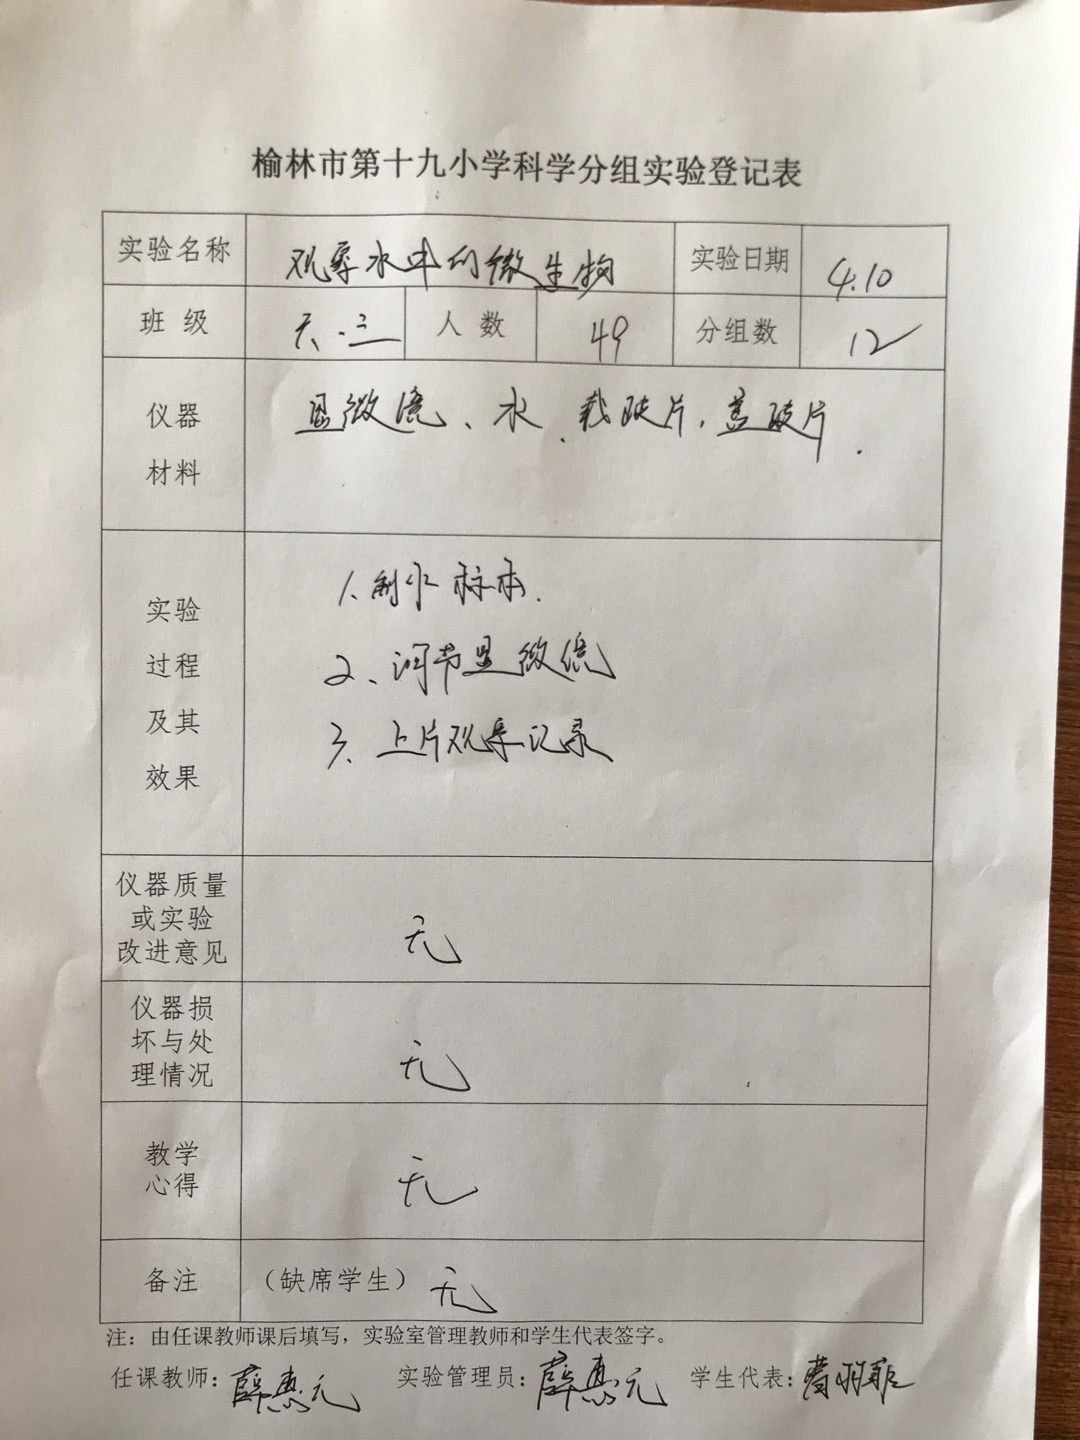 榆林市第十九小学科学分组实验登记表
实验名称 观察水中的微生物 实验日期 4.10
班 级 六.三 人 数 49 分组数 12
仪器 显微镜、水、载玻片、盖玻片.
材料
实验 1.制水标本.
过程 2、调节显微镜
及其 3、上片观察记录
效果
仪器质量
或实验 无
改进意见
仪器损
坏与处 无
理情况
教学 无
心得
备注 （缺席学生）无
注：由任课教师课后填写，实验室管理教师和学生代表签字。
任课教师：薛惠元 实验管理员：薛惠元 学生代表：